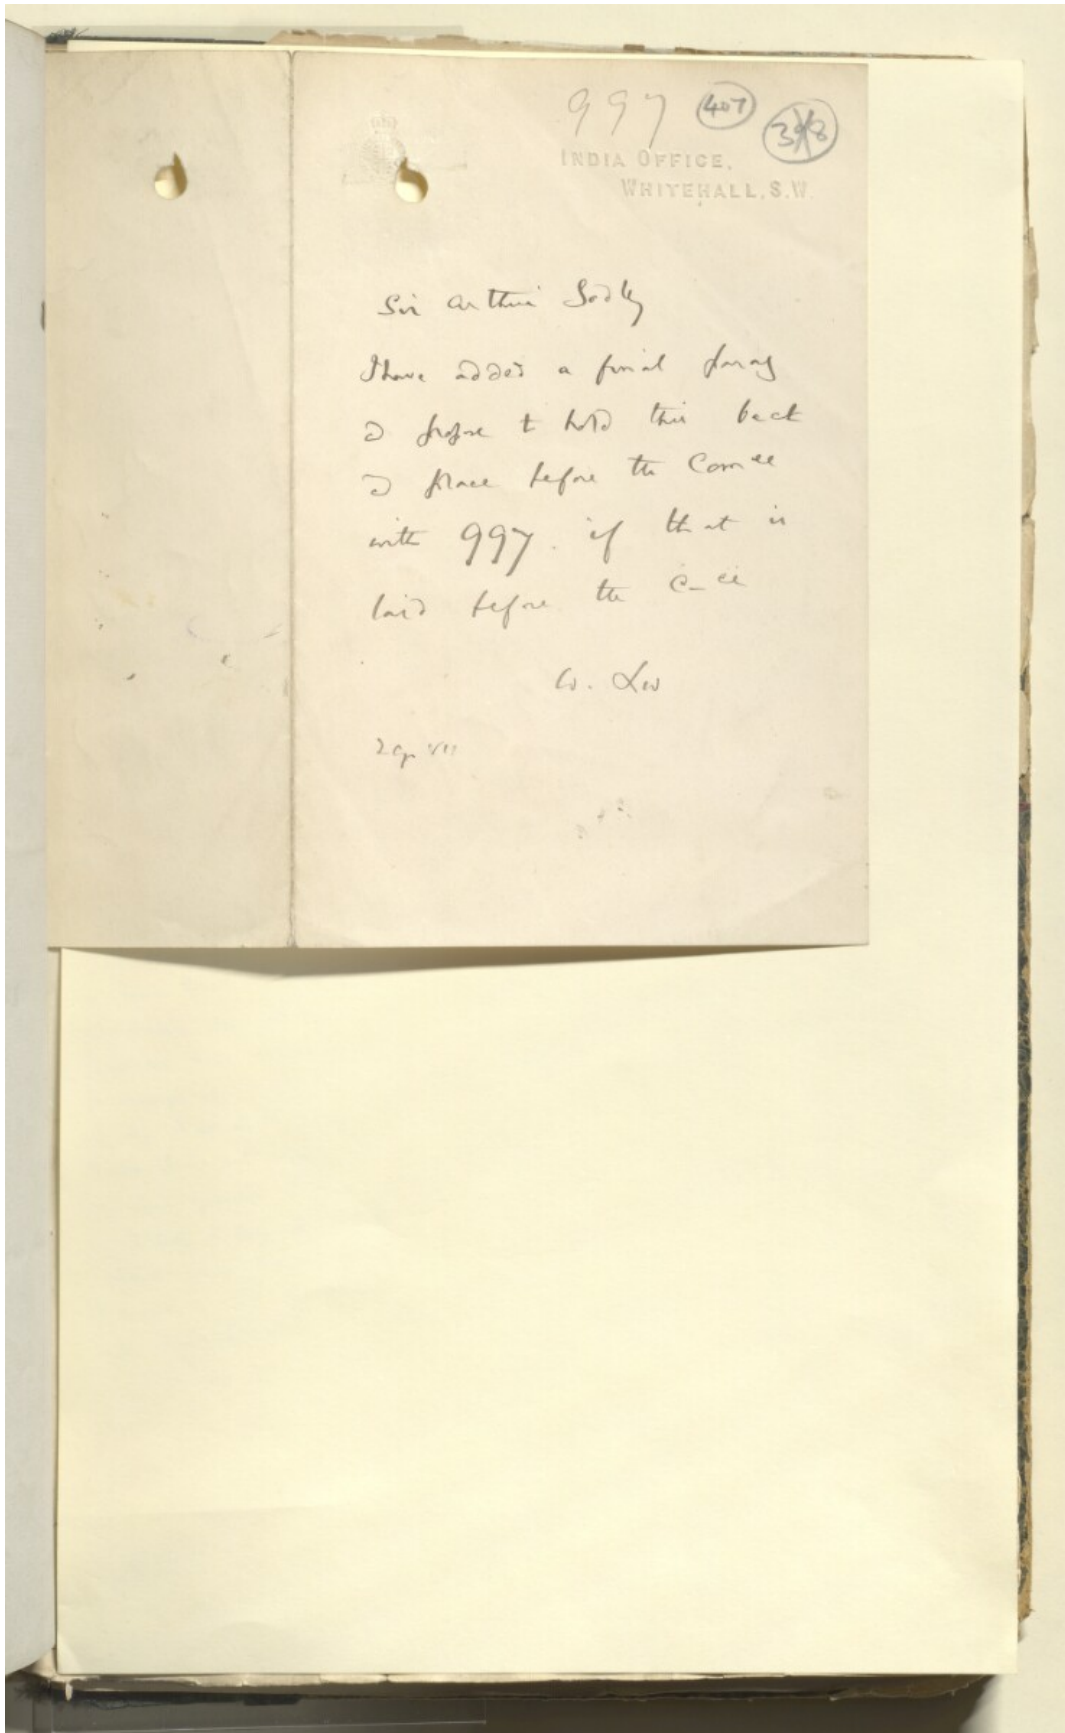 997 407
398
INDIA OFFICE,
WHITEHALL, S.W.
Sir Arthur Godley
I have added a final parag
& propose to hold this back
& place before the Comee
with 997. if that is
laid before the C-ee
W. Lee
2 Ap